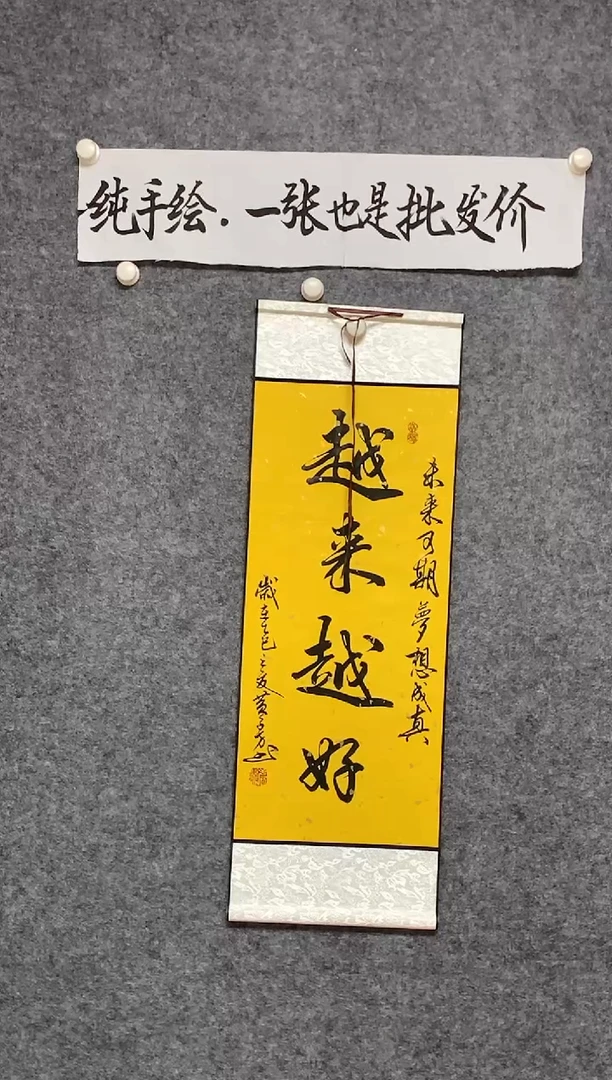 纯手绘.一张也是批发价
未来可期夢想成真
越来越好
歲在乙巳之夏黄子芳书